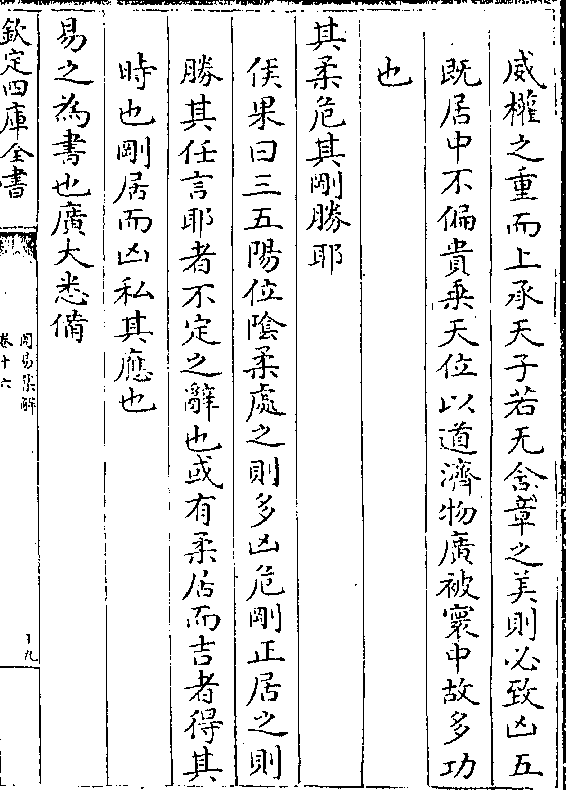 威權之重而上承天子若无含章之美則必致凶五
既居中不偏貴乗天位以道濟物廣被寰中故多功
也
其柔危其剛勝耶
侯果曰三五陽位陰柔處之則多凶危剛正居之則
勝其任言耶者不定之辭也或有柔居而吉者得其
時也剛居而凶私其應也
易之為書也廣大悉備
欽定四庫全書
周易集解
卷十六
十九